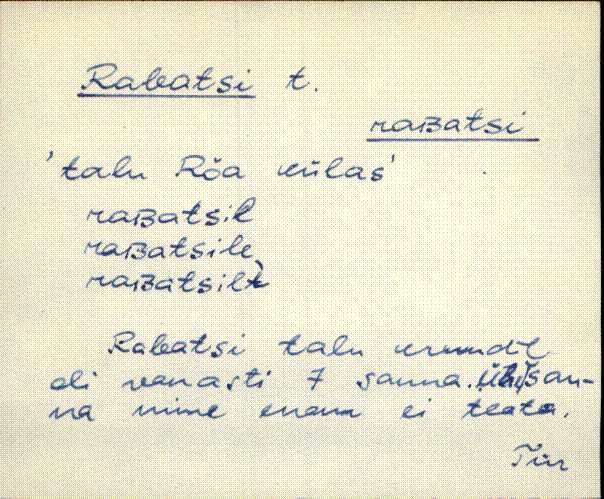 Rabatsi t.
raʙatsi
'talu Rõa külas'
raʙatsil
raʙatsile
raʙatsilt
Rabatsi talu krundil
oli vanasti 7 sauna. Ühe san-
na nime enam ei teata.
Tür